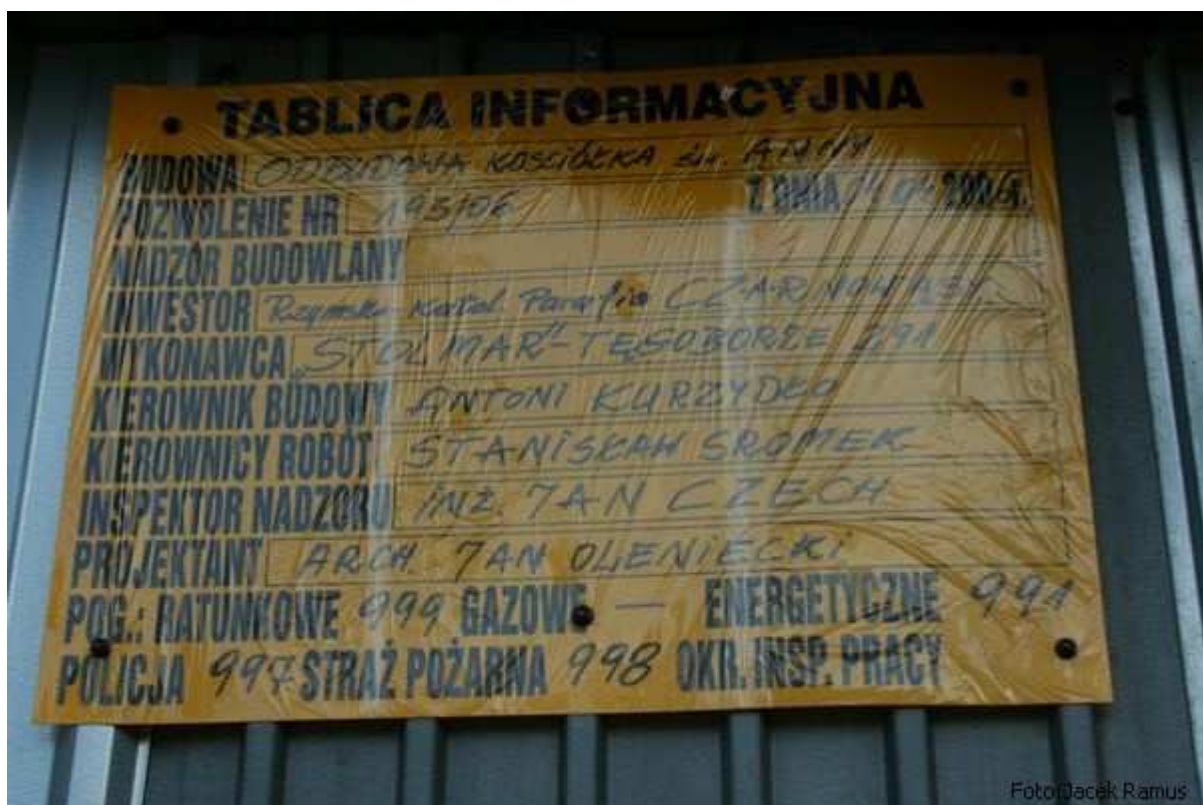 TABLICA INFORMACYJNA
BUDOWA ODBUDOWA KOSCIÓŁKA św. ANNY
POZWOLENIE NR 195/06 Z DNIA 04 2006r.
NADZÓR BUDOWLANY
INWESTOR Rzymsko Katol. Parafia CZARNOWĄSY
WYKONAWCA „STOLMAR" - TĘGOBORZE 291
KIEROWNIK BUDOWY ANTONI KURZYDŁO
KIEROWNICY ROBÓT STANISŁAW SROMEK
INSPEKTOR NADZORU inż. JAN CZECH
PROJEKTANT ARCH. JAN OLENIECKI
POG.: RATUNKOWE 999 GAZOWE — ENERGETYCZNE 991
POLICJA 997 STRAŻ POŻARNA 998 OKR. INSP. PRACY
Foto: Jacek Ramus